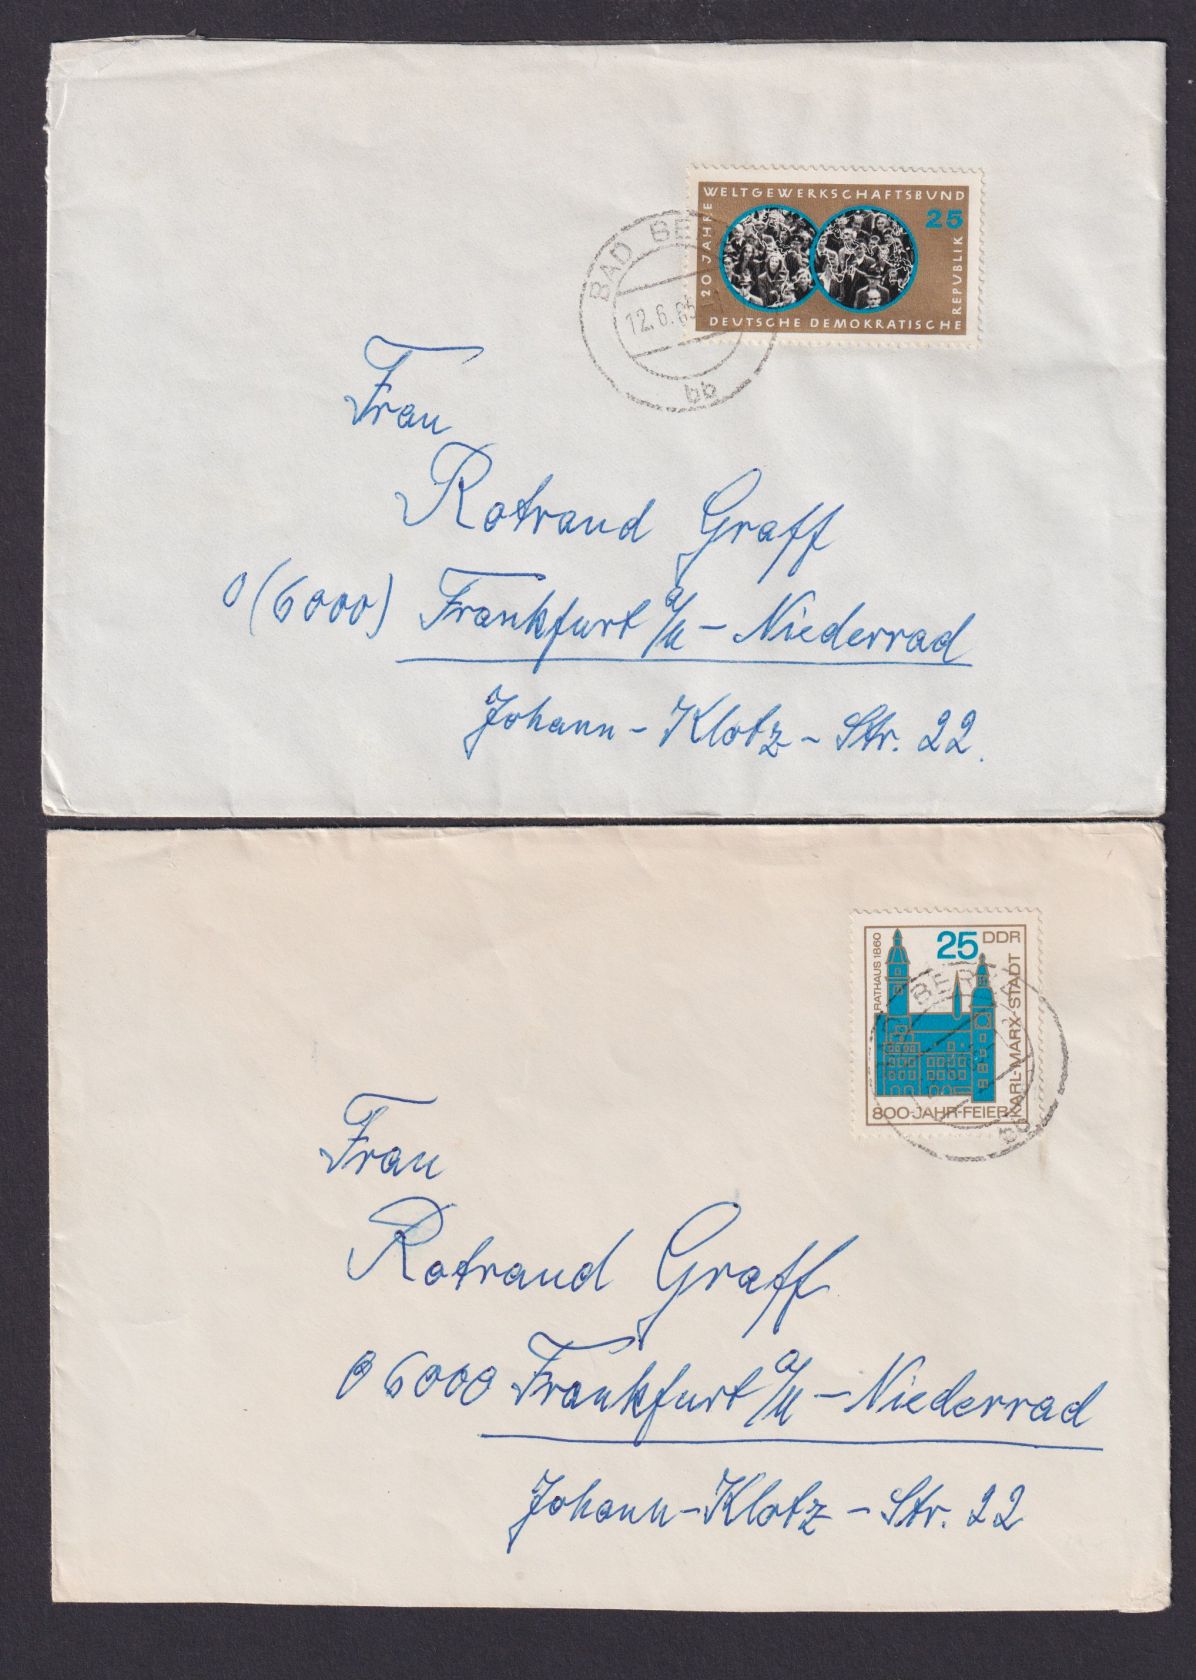 20 JAHRE WELTGEWERKSCHAFTSBUND
25
DEUTSCHE DEMOKRATISCHE REPUBLIK
BAD BE
12.6.65
bb
Frau
Rotraud Graff
(6000) Frankfurt a/M - Niederrad
Johann - Klotz - Str. 22.
RATHAUS 1860
25 DDR
800-JAHR-FEIER KARL-MARX-STADT
BER
Frau
Rotraud Graff
6000 Frankfurt a/M - Niederrad
Johann - Klotz - Str. 22